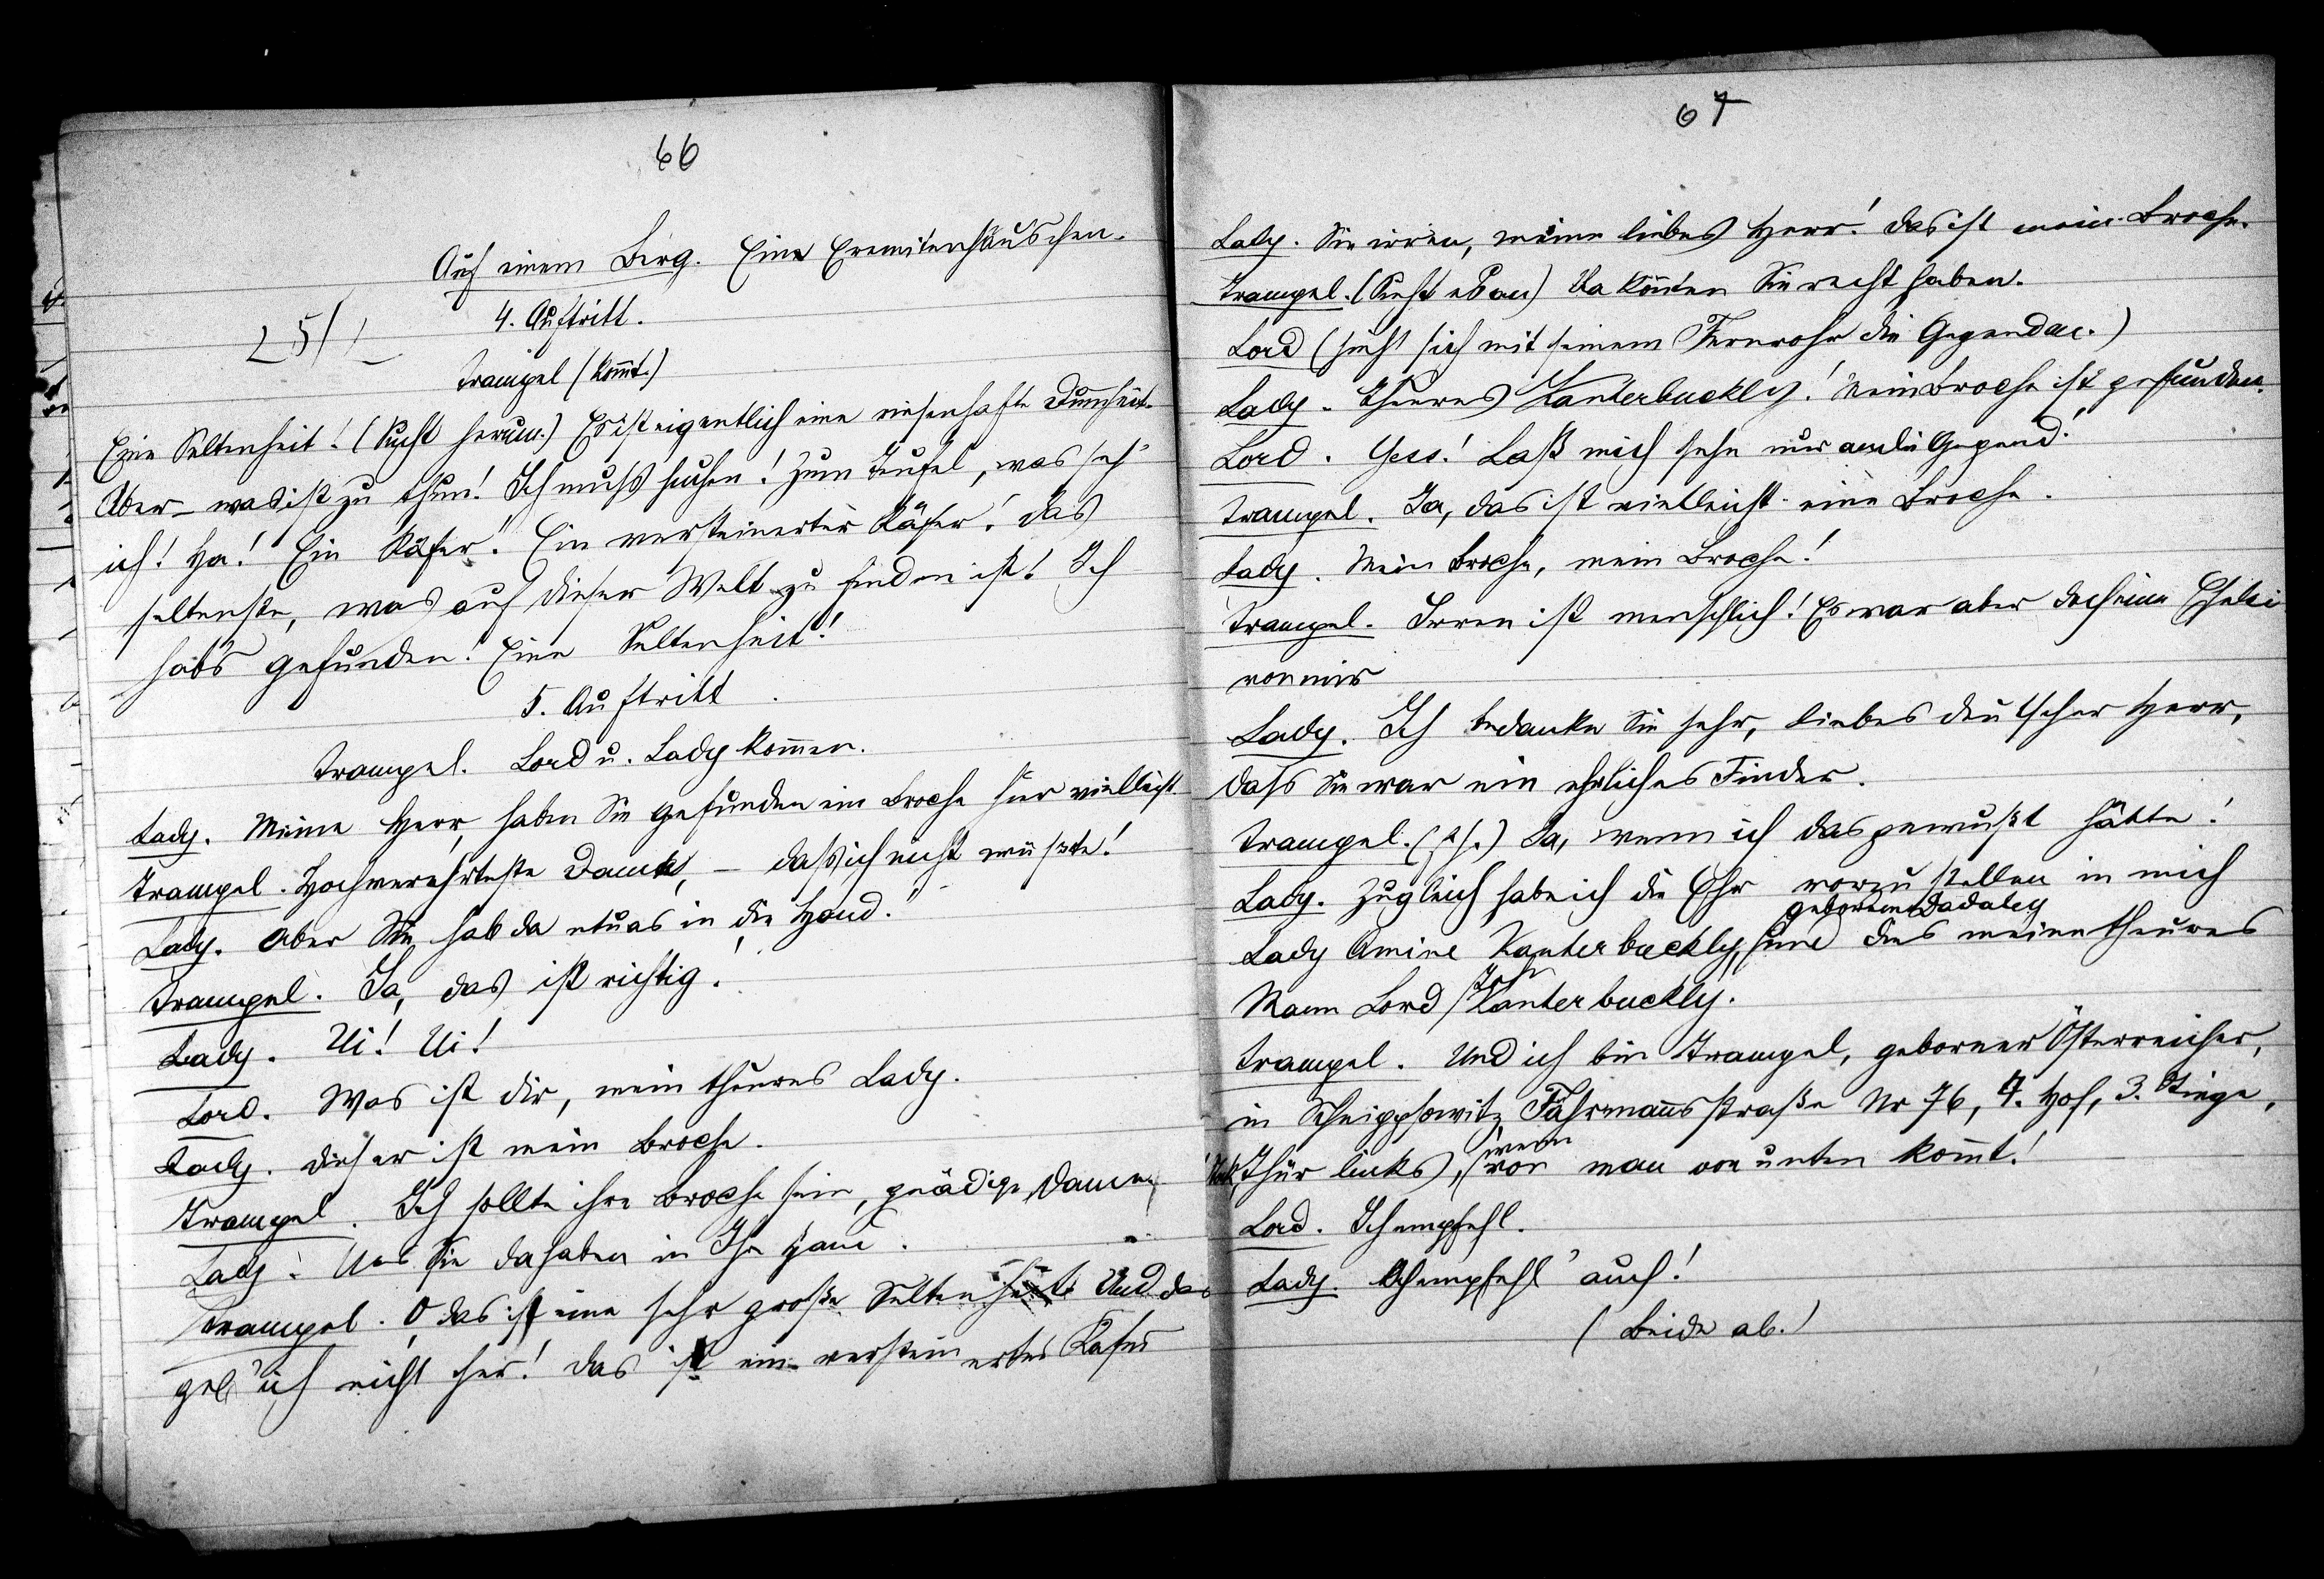 66
Auf einem Berg. Eine Eremitenhäuschen.
4. Auftritt.
Trampel (kommt.)
Eine Seltenheit! (Sucht herum.) Es ist eigentlich eine riesenhafte Dummheit.
Aber – was ist zu thun! Ich muß suchen! Zum Teufel, was seh'
ich! Ha! Ein Käfer! Ein versteinerter Käfer! Das
seltenste, was auf dieser Welt zu finden ist! Ich
hab's gefunden! Eine Seltenheit!
5. Auftritt.
Trampel. Lord u. Lady kommen.
Lady. Meine Herr, haben Sie gefunden ein Broche hier vielleicht
Trampel. Hochverehrteste Dame, – daß ich nicht wüßte!
Lady. Aber Sie hab da etwas in die Hand!
Trampel. Ja, das ist richtig!
Lady. Ui! Ui!
Lord. Was ist dir, mein theures Lady.
Lady. Dieser ist mein Broche.
Trampel. Ich sollte ihre Broche sein, gnädige Dame,
Lady. Was Sie da haben in Ihr Hand.
Trampel. O das ist eine sehr große Seltenheit. Und das
geb' ich nicht her! Das ist ein versteinertes Käfer
67
Lady. Sie irren, meine liebes Herr! Das ist mein Broche.
Trampel. (Sieht es an) Da könnten Sie recht haben.
Lord (sieht sich mit seinem Fernrohr die Gegend an.)
Lady. Theures Kanterbuckly! Mein Broche ist gefunden.
Lord. Yess! Laß mich sehn nur an die Gegend!
Trampel. Ja, das ist vielleicht eine Broche.
Lady. Mein Broche, mein Broche!
Trampel. Irren ist menschlich! Es war aber doch eine Eselei
von mir
Lady. Ich bedanke Sie sehr, liebes deutscher Herr,
dass Sie war ein ehrliches Finder.
Trampel. Ja, wenn ich das gewußt hätte!
Lady. Zugleich habe ich die Ehr vorzustellen in mich
Lady Amine Kanterbuckly, geborene Dadaley und dies meine theures
Mann Lord John Kanterbuckly.
Trampel. Und ich bin Trampel, geborner Österreicher,
in Schnippsowitz Fuhrmannsstraße Nr 76, 7. Hof, 3. Stiege,
Thür links, wenn man von unten kommt!
Lord. Ich empfehl.
Lady. Ich empfehl' auch!
(Beide ab.)